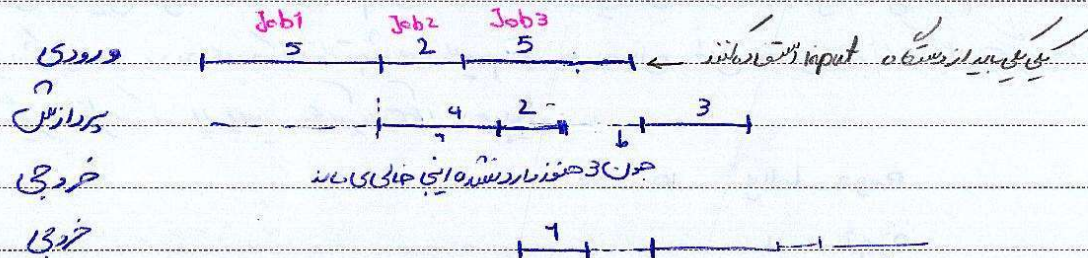 Job1 Job2 Job3
ورودی 5 2 5 ← یکی یکی باید از دستگاه input استفاده کنند
پردازش 4 2 3
خروجی چون 3 هنوز وارد نشده اینجا خالی می ماند
خروجی 1